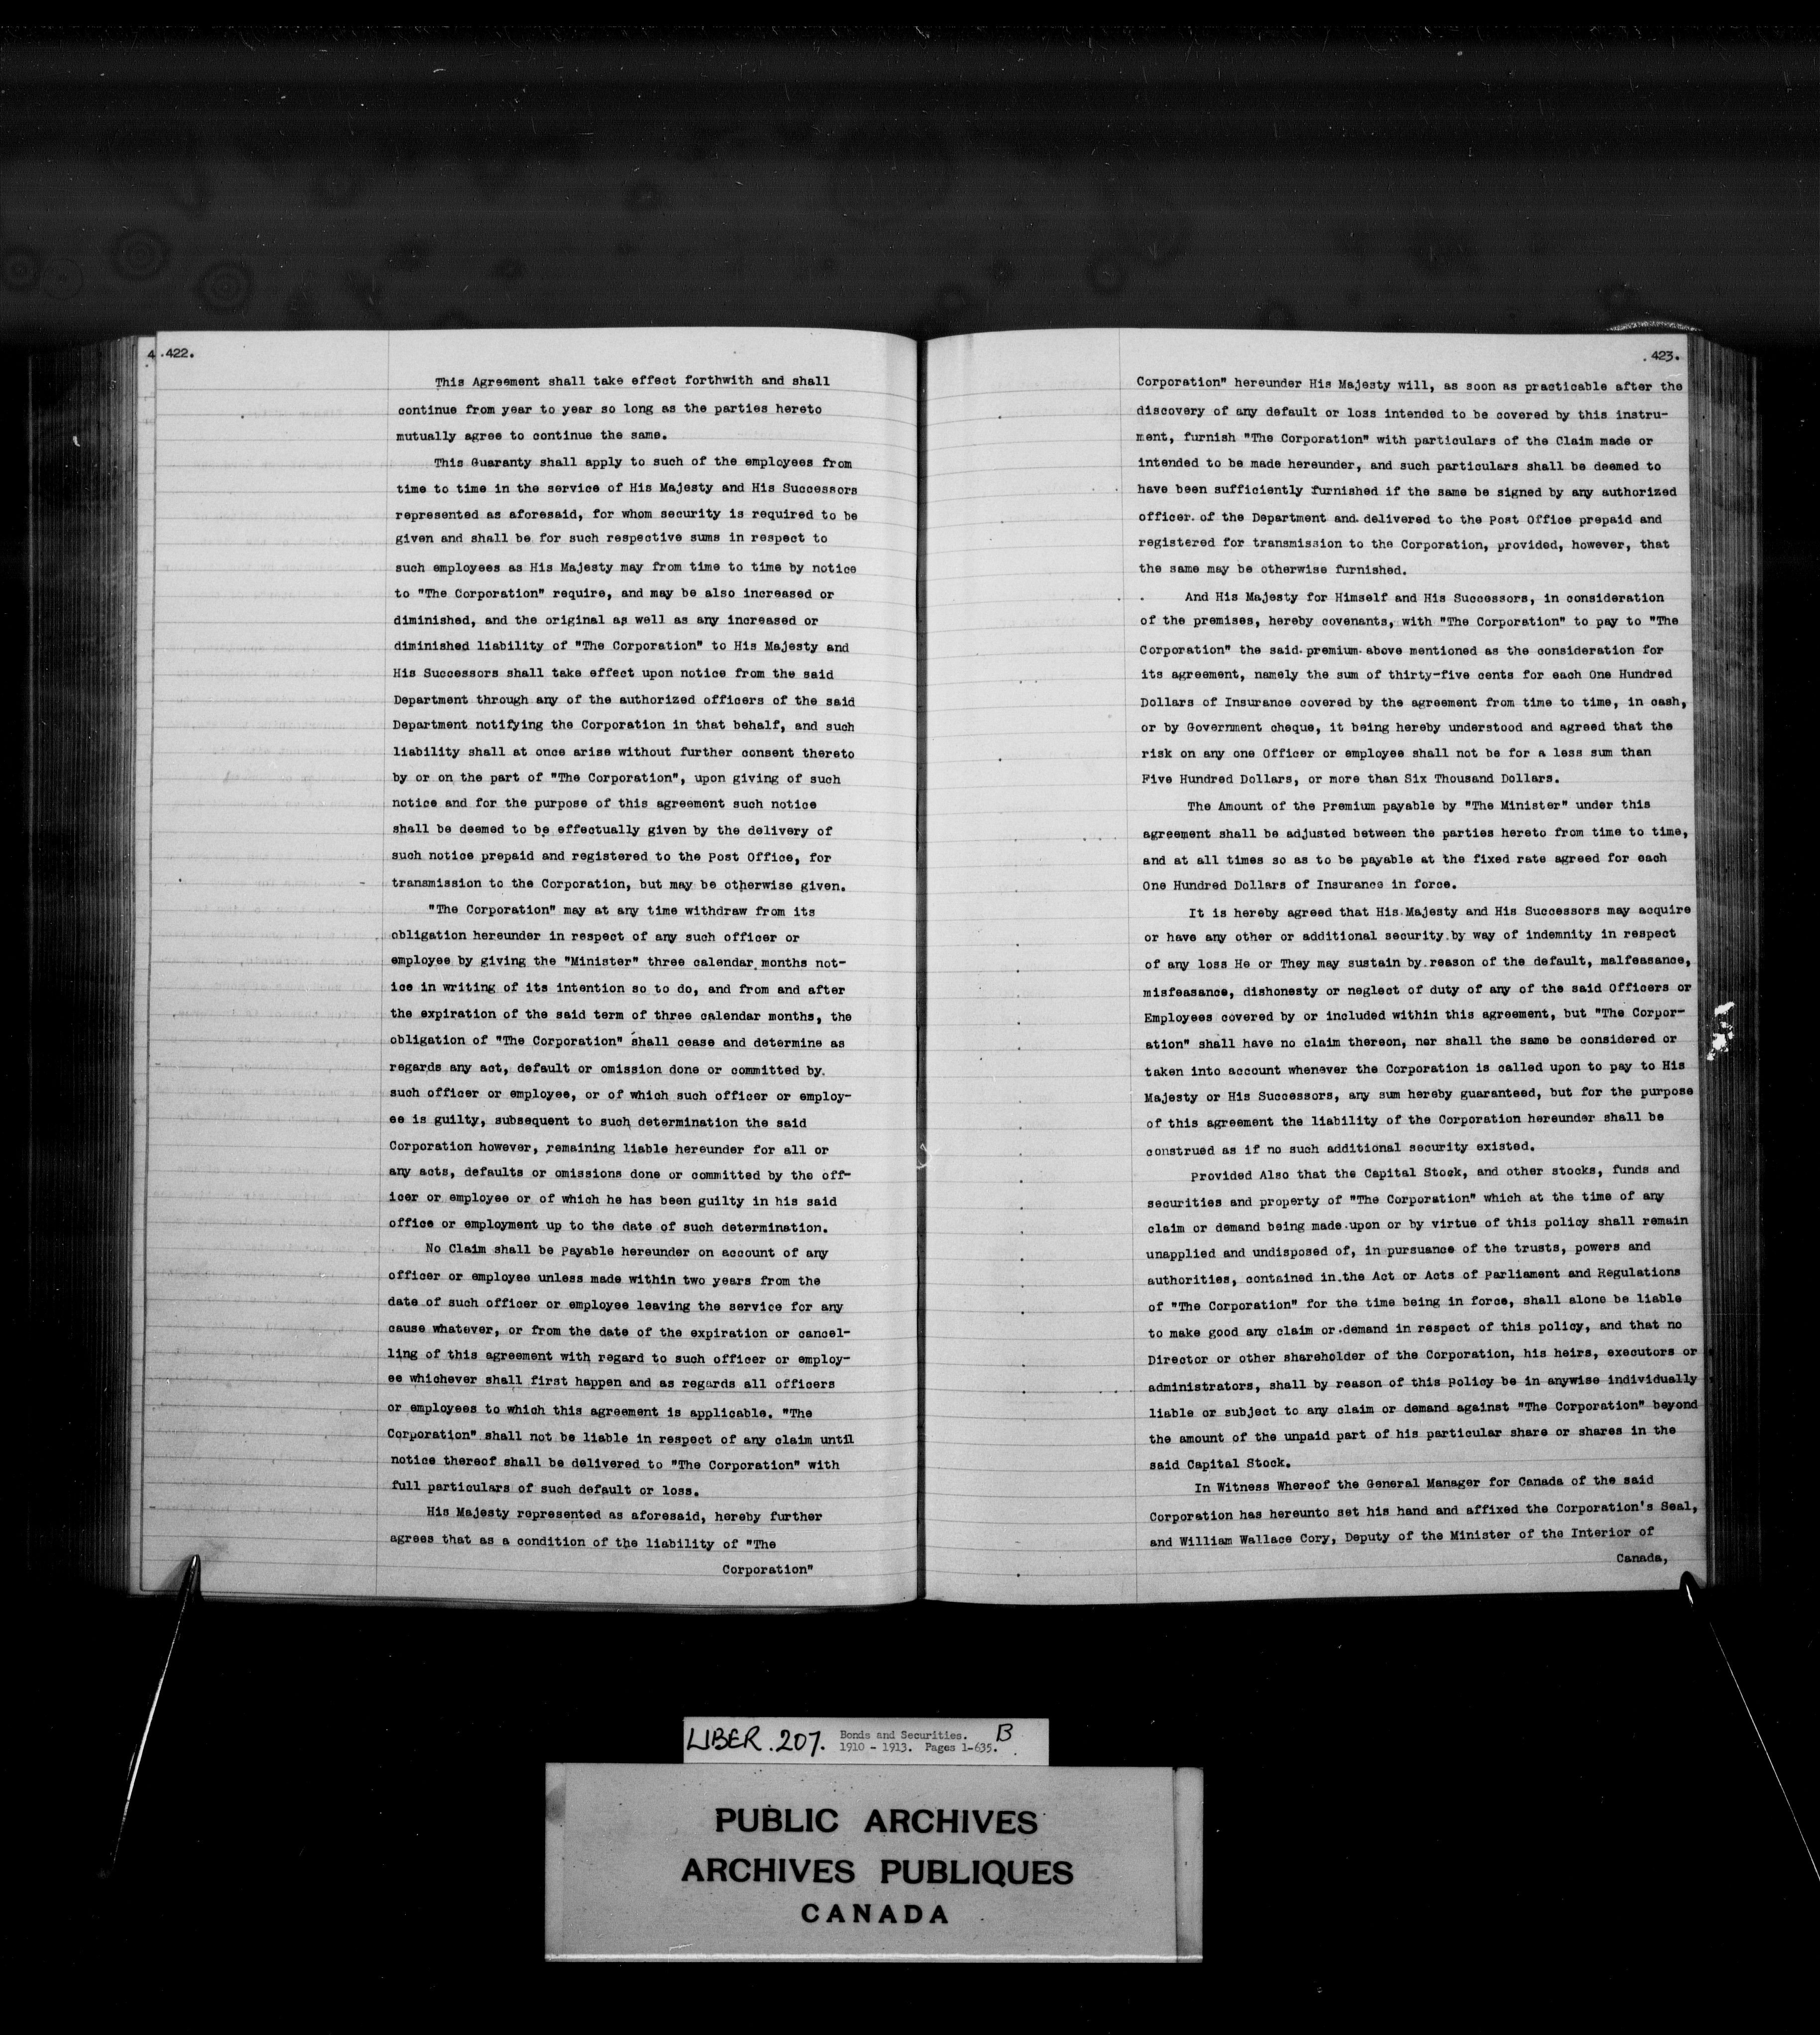 4 .422.
This Agreement shall take effect forthwith and shall
continue from year to year so long as the parties hereto
mutually agree to continue the same.
This Guaranty shall apply to such of the employees from
time to time in the service of His Majesty and His Successors
represented as aforesaid, for whom security is required to be
given and shall be for such respective sums in respect to
such employees as His Majesty may from time to time by notice
to "The Corporation" require, and may be also increased or
diminished, and the original as well as any increased or
diminished liability of "The Corporation" to His Majesty and
His Successors shall take effect upon notice from the said
Department through any of the authorized officers of the said
Department notifying the Corporation in that behalf, and such
liability shall at once arise without further consent thereto
by or on the part of "The Corporation", upon giving of such
notice and for the purpose of this agreement such notice
shall be deemed to be effectually given by the delivery of
such notice prepaid and registered to the Post Office, for
transmission to the Corporation, but may be otherwise given.
"The Corporation" may at any time withdraw from its
obligation hereunder in respect of any such officer or
employee by giving the "Minister" three calendar months not-
ice in writing of its intention so to do, and from and after
the expiration of the said term of three calendar months, the
obligation of "The Corporation" shall cease and determine as
regards any act, default or omission done or committed by
such officer or employee, or of which such officer or employ-
ee is guilty, subsequent to such determination the said
Corporation however, remaining liable hereunder for all or
any acts, defaults or omissions done or committed by the off-
icer or employee or of which he has been guilty in his said
office or employment up to the date of such determination.
No Claim shall be Payable hereunder on account of any
officer or employee unless made within two years from the
date of such officer or employee leaving the service for any
cause whatever, or from the date of the expiration or cancel-
ling of this agreement with regard to such officer or employ-
ee whichever shall first happen and as regards all officers
or employees to which this agreement is applicable. "The
Corporation" shall not be liable in respect of any claim until
notice thereof shall be delivered to "The Corporation" with
full particulars of such default or loss.
His Majesty represented as aforesaid, hereby further
agrees that as a condition of the liability of "The
Corporation"
.423.
Corporation" hereunder His Majesty will, as soon as practicable after the
discovery of any default or loss intended to be covered by this instru-
ment, furnish "The Corporation" with particulars of the Claim made or
intended to be made hereunder, and such particulars shall be deemed to
have been sufficiently furnished if the same be signed by any authorized
officer of the Department and delivered to the Post Office prepaid and
registered for transmission to the Corporation, provided, however, that
the same may be otherwise furnished.
And His Majesty for Himself and His Successors, in consideration
of the premises, hereby covenants, with "The Corporation" to pay to "The
Corporation" the said premium above mentioned as the consideration for
its agreement, namely the sum of thirty-five cents for each One Hundred
Dollars of Insurance covered by the agreement from time to time, in cash,
or by Government cheque, it being hereby understood and agreed that the
risk on any one Officer or employee shall not be for a less sum than
Five Hundred Dollars, or more than Six Thousand Dollars.
The Amount of the Premium payable by "The Minister" under this
agreement shall be adjusted between the parties hereto from time to time,
and at all times so as to be payable at the fixed rate agreed for each
One Hundred Dollars of Insurance in force.
It is hereby agreed that His Majesty and His Successors may acquire
or have any other or additional security by way of indemnity in respect
of any loss He or They may sustain by reason of the default, malfeasance,
misfeasance, dishonesty or neglect of duty of any of the said Officers or
Employees covered by or included within this agreement, but "The Corpor-
ation" shall have no claim thereon, nor shall the same be considered or
taken into account whenever the Corporation is called upon to pay to His
Majesty or His Successors, any sum hereby guaranteed, but for the purpose
of this agreement the liability of the Corporation hereunder shall be
construed as if no such additional security existed.
Provided Also that the Capital Stock, and other stocks, funds and
securities and property of "The Corporation" which at the time of any
claim or demand being made upon or by virtue of this policy shall remain
unapplied and undisposed of, in pursuance of the trusts, powers and
authorities, contained in the Act or Acts of Parliament and Regulations
of "The Corporation" for the time being in force, shall alone be liable
to make good any claim or demand in respect of this policy, and that no
Director or other shareholder of the Corporation, his heirs, executors or
administrators, shall by reason of this Policy be in anywise individually
liable or subject to any claim or demand against "The Corporation" beyond
the amount of the unpaid part of his particular share or shares in the
said Capital Stock.
In Witness Whereof the General Manager for Canada of the said
Corporation has hereunto set his hand and affixed the Corporation's Seal,
and William Wallace Cory, Deputy of the Minister of the Interior of
Canada,
LIBER . 207. Bonds and Securities. B
1910 - 1913. Pages 1-635.
PUBLIC ARCHIVES
ARCHIVES PUBLIQUES
CANADA